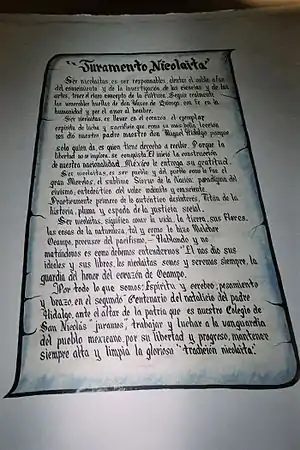 "Juramento Nicolaita"
Ser nicolaitas, es ser responsables, alentar el noble afán
del conocimiento y de la investigación, de las ciencias y de las
artes, tener el claro concepto de la Cultura. Seguir realmente
las venerables huellas de don Vasco de Quiroga, con fe en la
humanidad y por el amor al hombre.
Ser nicolaitas, es llevar en el corazón, el ejemplar
espíritu de lucha y sacrificio que como su más bella lección
nos dio nuestro padre maestro don Miguel Hidalgo porque
solo quien da, es quien tiene derecho a recibir. Porque la
libertad no se implora, se conquista. El inició la construcción
de nuestra nacionalidad. México le entrega su gratitud.
Ser nicolaitas, es ser pueblo y del pueblo como lo fue el
gran Morelos, el sublime Siervo de la Nación: paradigma del
civismo, catedrático del valor indómito y consciente.
Proactivamente primero de lo auténtico destructores, Titán de la
historia, pluma y espada de la justicia social.
Ser nicolaitas, significa amar la vida, la tierra, sus flores,
las cosas de la naturaleza, tal y como lo hizo Melchor
Ocampo, precursor del pacifismo. – "Hablando y no
matándonos es como debemos entendernos" El nos dio sus
ideales y sus libros, los nicolaitas somos y seremos siempre, la
guardia del honor del corazón de Ocampo.
Por todo lo que somos: Espíritu y cerebro; pensamiento
y brazo, en el segundo Centenario del natalicio del padre
Hidalgo, ante el altar de la patria que es nuestro Colegio de
San Nicolás "juramos", trabajar y luchar a la vanguardia
del pueblo mexicano, por su libertad y progreso, mantener
siempre alta y limpia la gloriosa "tradición nicolaita."